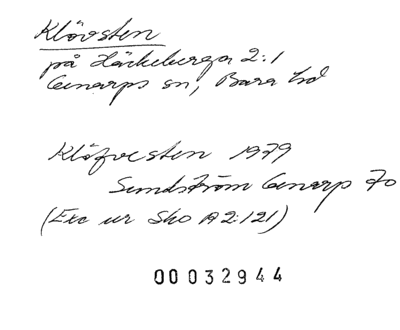 Klövsten
på Häckeberga 2:1
Genarps sn, Bara hd
Klöfvesten 1979
Sundström Genarp 70
(Exc ur Sko A2:121)
00032944